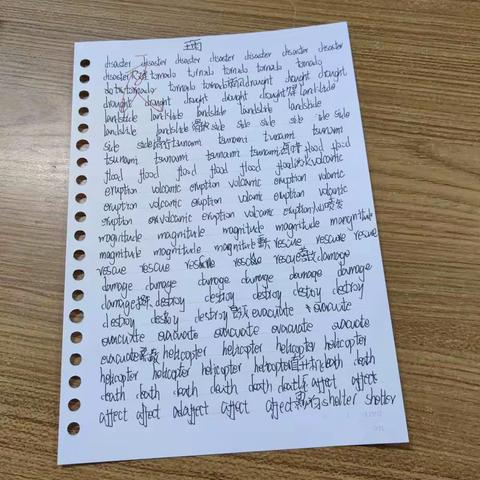 disaster disaster disaster disaster disaster disaster
disaster tornado tornado tornado tornado
tornado tornado tornado drought drought
drought drought drought drought drought landslide
landslide landslide landslide landslide landslide
landslide landslide slide slide side slide side side
side side tsunami tsunami tsunami tsunami
tsunami tsunami tsunami tsunami flood flood
flood flood flood flood flood flood volcanic
eruption volcanic eruption volcanic eruption volcanic
eruption volcanic eruption volcanic eruption volcanic
eruption volcanic eruption volcanic eruption
magnitude magnitude magnitude magnitude
magnitude magnitude magnitude rescue rescue rescue
rescue rescue rescue rescue rescue damage
damage damage damage damage damage
damage destroy destroy destroy destroy destroy
destroy destroy destroy evacuate evacuate
evacuate evacuate evacuate evacuate evacuate
evacuate helicopter helicopter helicopter helicopter
helicopter helicopter helicopter helicopter death death
death death death death death death affect affect
affect affect affect affect affect shelter shelter